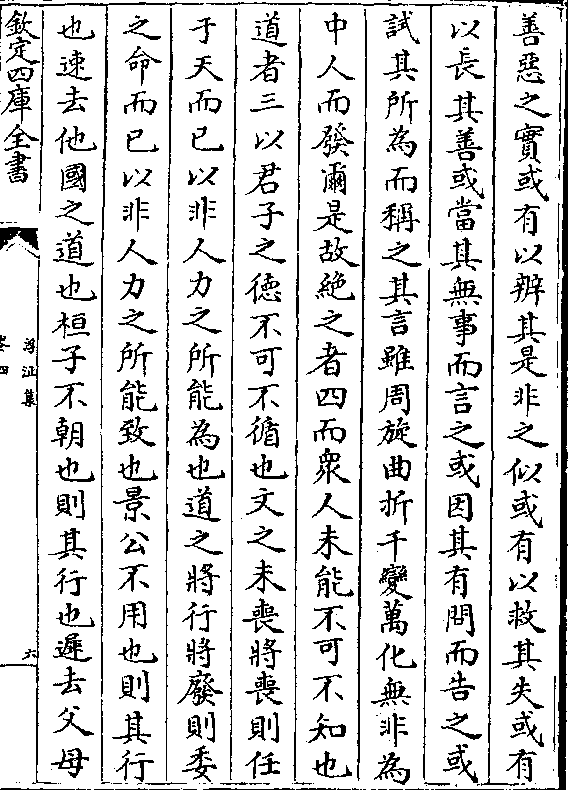 善惡之實或有以辨其是非之似或有以救其失或有
以長其善或當其無事而言之或因其有問而告之或
試其所為而稱之其言雖周旋曲折千變萬化無非為
中人而發爾是故絶之者四而衆人未能不可不知也
道者三以君子之徳不可不循也文之未喪將喪則任
于天而已以非人力之所能為也道之將行將廢則委
之命而已以非人力之所能致也景公不用也則其行
也速去他國之道也桓子不朝也則其行也遲去父母
欽定四庫全書
浮沚集
卷四
六